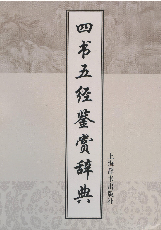 四书五经鉴赏辞典
上海辞书出版社